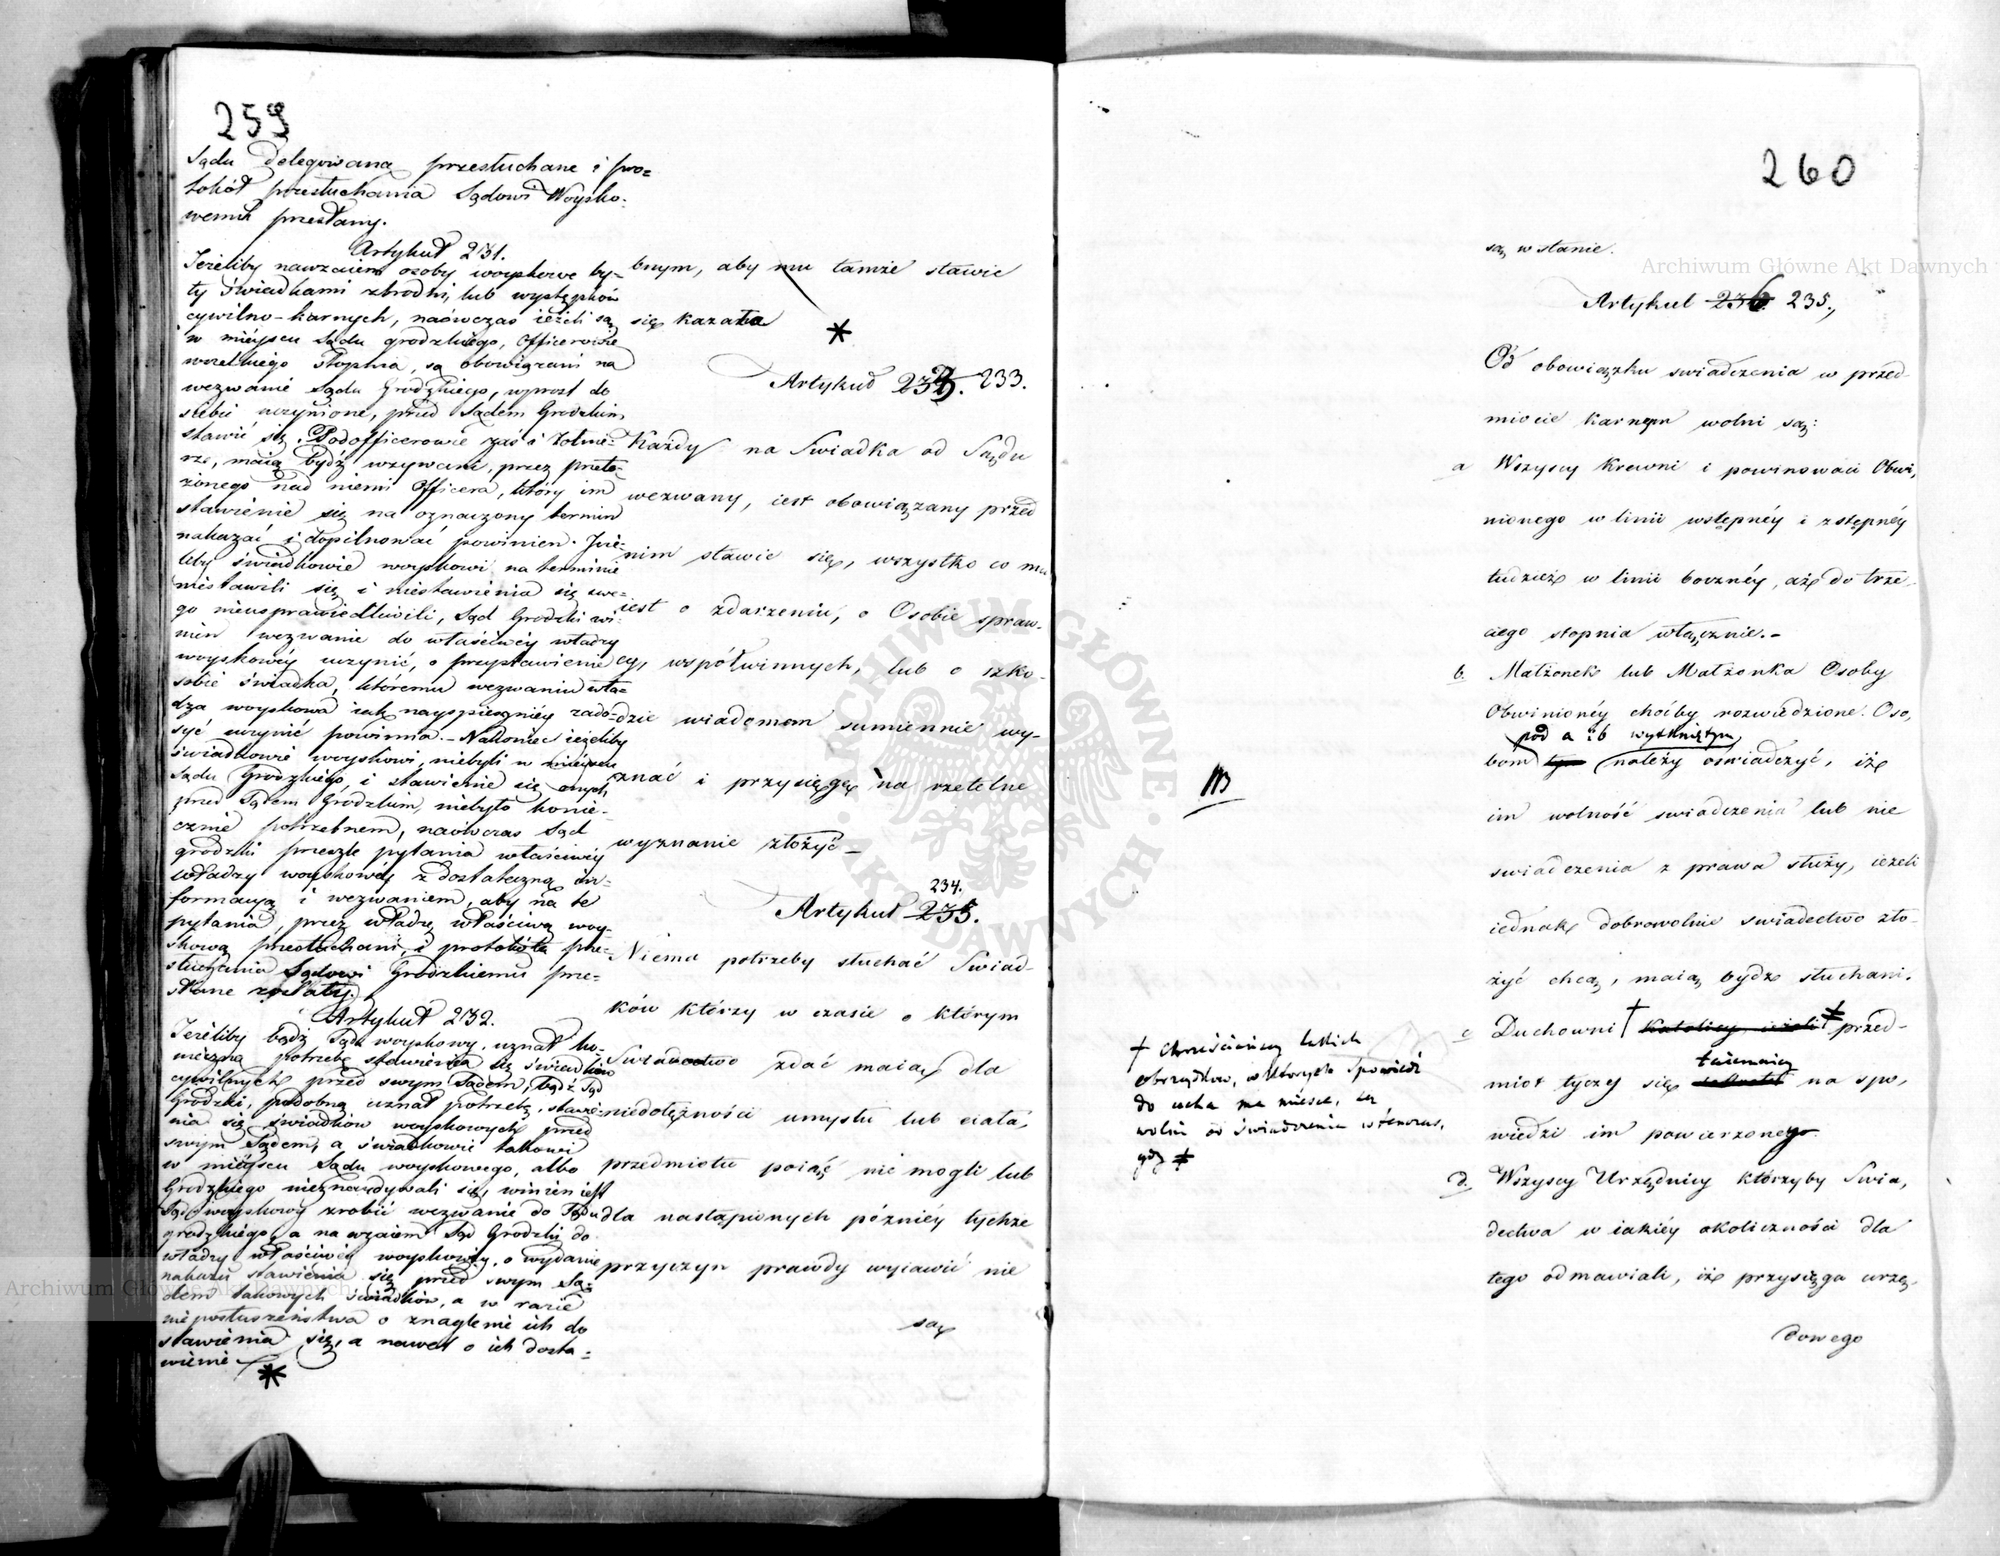 259
Sądu delegowaną przesłuchane i pro=
tokół przesłuchania Sądowi Woysko-
wemu przesłany.
Artykuł 231.
Jeżeliby nawzaiem osoby woyskowe by-
ły świadkami zbrodni, lub występków
cywilno-karnych, naówczas ieżeli są
w mieyscu Sądu grodzkiego, Officerowie
wszelkiego stopnia, są obowiązani na
wezwanie Sądu Grodzkiego, wprost do
siebie uczynione, przed Sądem Grodzkim
stawić się. Podofficerowie zaś i Żołnie-
rze, maią bydź wzywani, przez przeło-
żonego nad niemi Officera, który im
stawienie się na oznaczony termin
nakazać i dopilnować powinien. Jeże-
liby świadkowie woyskowi na terminie
niestawili się i niestawienia się swe-
go nieusprawiedliwili, Sąd Grodzki wi-
nien wezwanie do właściwéy władzy
woyskowéy uczynić, o przystawienie
sobie świadka, któremu wezwaniu wła-
dza woyskowa iak nayspieszniéy zado-
syć uczynić powinna.- Nakoniec ieżeliby
świadkowie woyskowi, niebyli w mieyscu
Sądu Grodzkiego, i stawienie się onych
przed Sądem Grodzkim, niebyło konie-
cznie potrzebnem, naówczas Sąd
grodzki prześle pytania właściwéy
władzy woyskowéy z dostateczną in-
formacyą i wezwaniem, aby na te
pytania, przez władzę właściwą woy-
skową przesłuchani, i protokóła prze-
słuchania Sądowi Grodzkiemu prze-
słane zostały.
Artykuł 232.
Jeżeliby bądź Sąd woyskowy, uznał ko-
nieczną potrzebę stawienia się świadków
cywilnych przed swym Sądem, bądź Sąd
Grodzki, podobną uznał potrzebę, stawie-
nia się świadków woyskowych przed
swym Sądem, a świadkowie takowi
w mieyscu Sądu woyskowego, albo
Grodzkiego nieznaydywali się, winien iest
Sąd woyskowy zrobić wezwanie do Sądu
grodzkiego, a na wzaiem Sąd Grodzki do
władzy właściwéy woyskowéy, o wydanie
nakazu stawienia się przed swym Są-
dem takowych świadków, a w razie
nieposłuszeństwa o znaglenie ich do
stawienia się, a nawet o ich dosta-
wienie
*
bnym, aby mu tamże stawić
się kazała
*
Artykuł 232. 233.
Każdy na Swiadka od Sądu
wezwany, iest obowiązany przed
nim stawić się, wszystko co mu
iest o zdarzeniu, o Osobie spraw-
cy, współwinnych, lub o szko-
dzie wiadomem sumiennie wy-
znać i przysięgę na rzetelne
wyznanie złożyć-
234.
Artykuł 233.
Niema potrzeby słuchać Swiad-
ków którzy w czasie o którym
Swiadectwo zdać maią dla
niedołężności umysłu lub ciała,
przedmiotu poiąć nie mogli lub
dla nastąpionych późniéy tychże
przyczyn prawdy wyiawić nie
są
260
są w stanie.
Artykuł 236. 235.,
Od obowiązku swiadczenia w przed-
miocie karnym wolni są:
a Wszyscy Krewni i powinowaci Obwi,
nionego w linii wstępnéy i zstępnéy
tudzież w linii bocznéy, aże do trze-
ciego stopnia włącznie.-
b. Małżonek lub Małżonka Osoby
Obwinionéy choćby rozwiedzione. Oso,
pod a i b wytkniętym
bom tym należy oswiadczyć, iż
im wolność swiadczenia lub nie
swiadczenia z prawa służy, ieżeli
iednak dobrowolnie swiadectwo zło-
żyć chcą, maią bydź słuchani.
c Duchowni † Katolicy ieżeli ‡ przed-
taiemnicy
miot tyczy się na spo,
wiedzi im powierzonego.
d. Wszyscy Urzędnicy którzyby Swia,
dectwa w iakiéy okoliczności dla
tego odmawiali, iże przysięga urzę,
dowego
NB
† chrześciańscy takich
obrządków, w których Spowiedź
do ucha ma mieysce, są
wolni od świadczenia wtenczas,
gdy ‡
Archiwum Główne Akt Dawnych
Archiwum Główne Akt Dawnych
ARCHIWUM GŁÓWNE AKT DAWNYCH